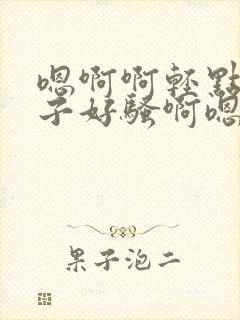 嗯啊啊轻點
子好騷啊嗯
果子泡二